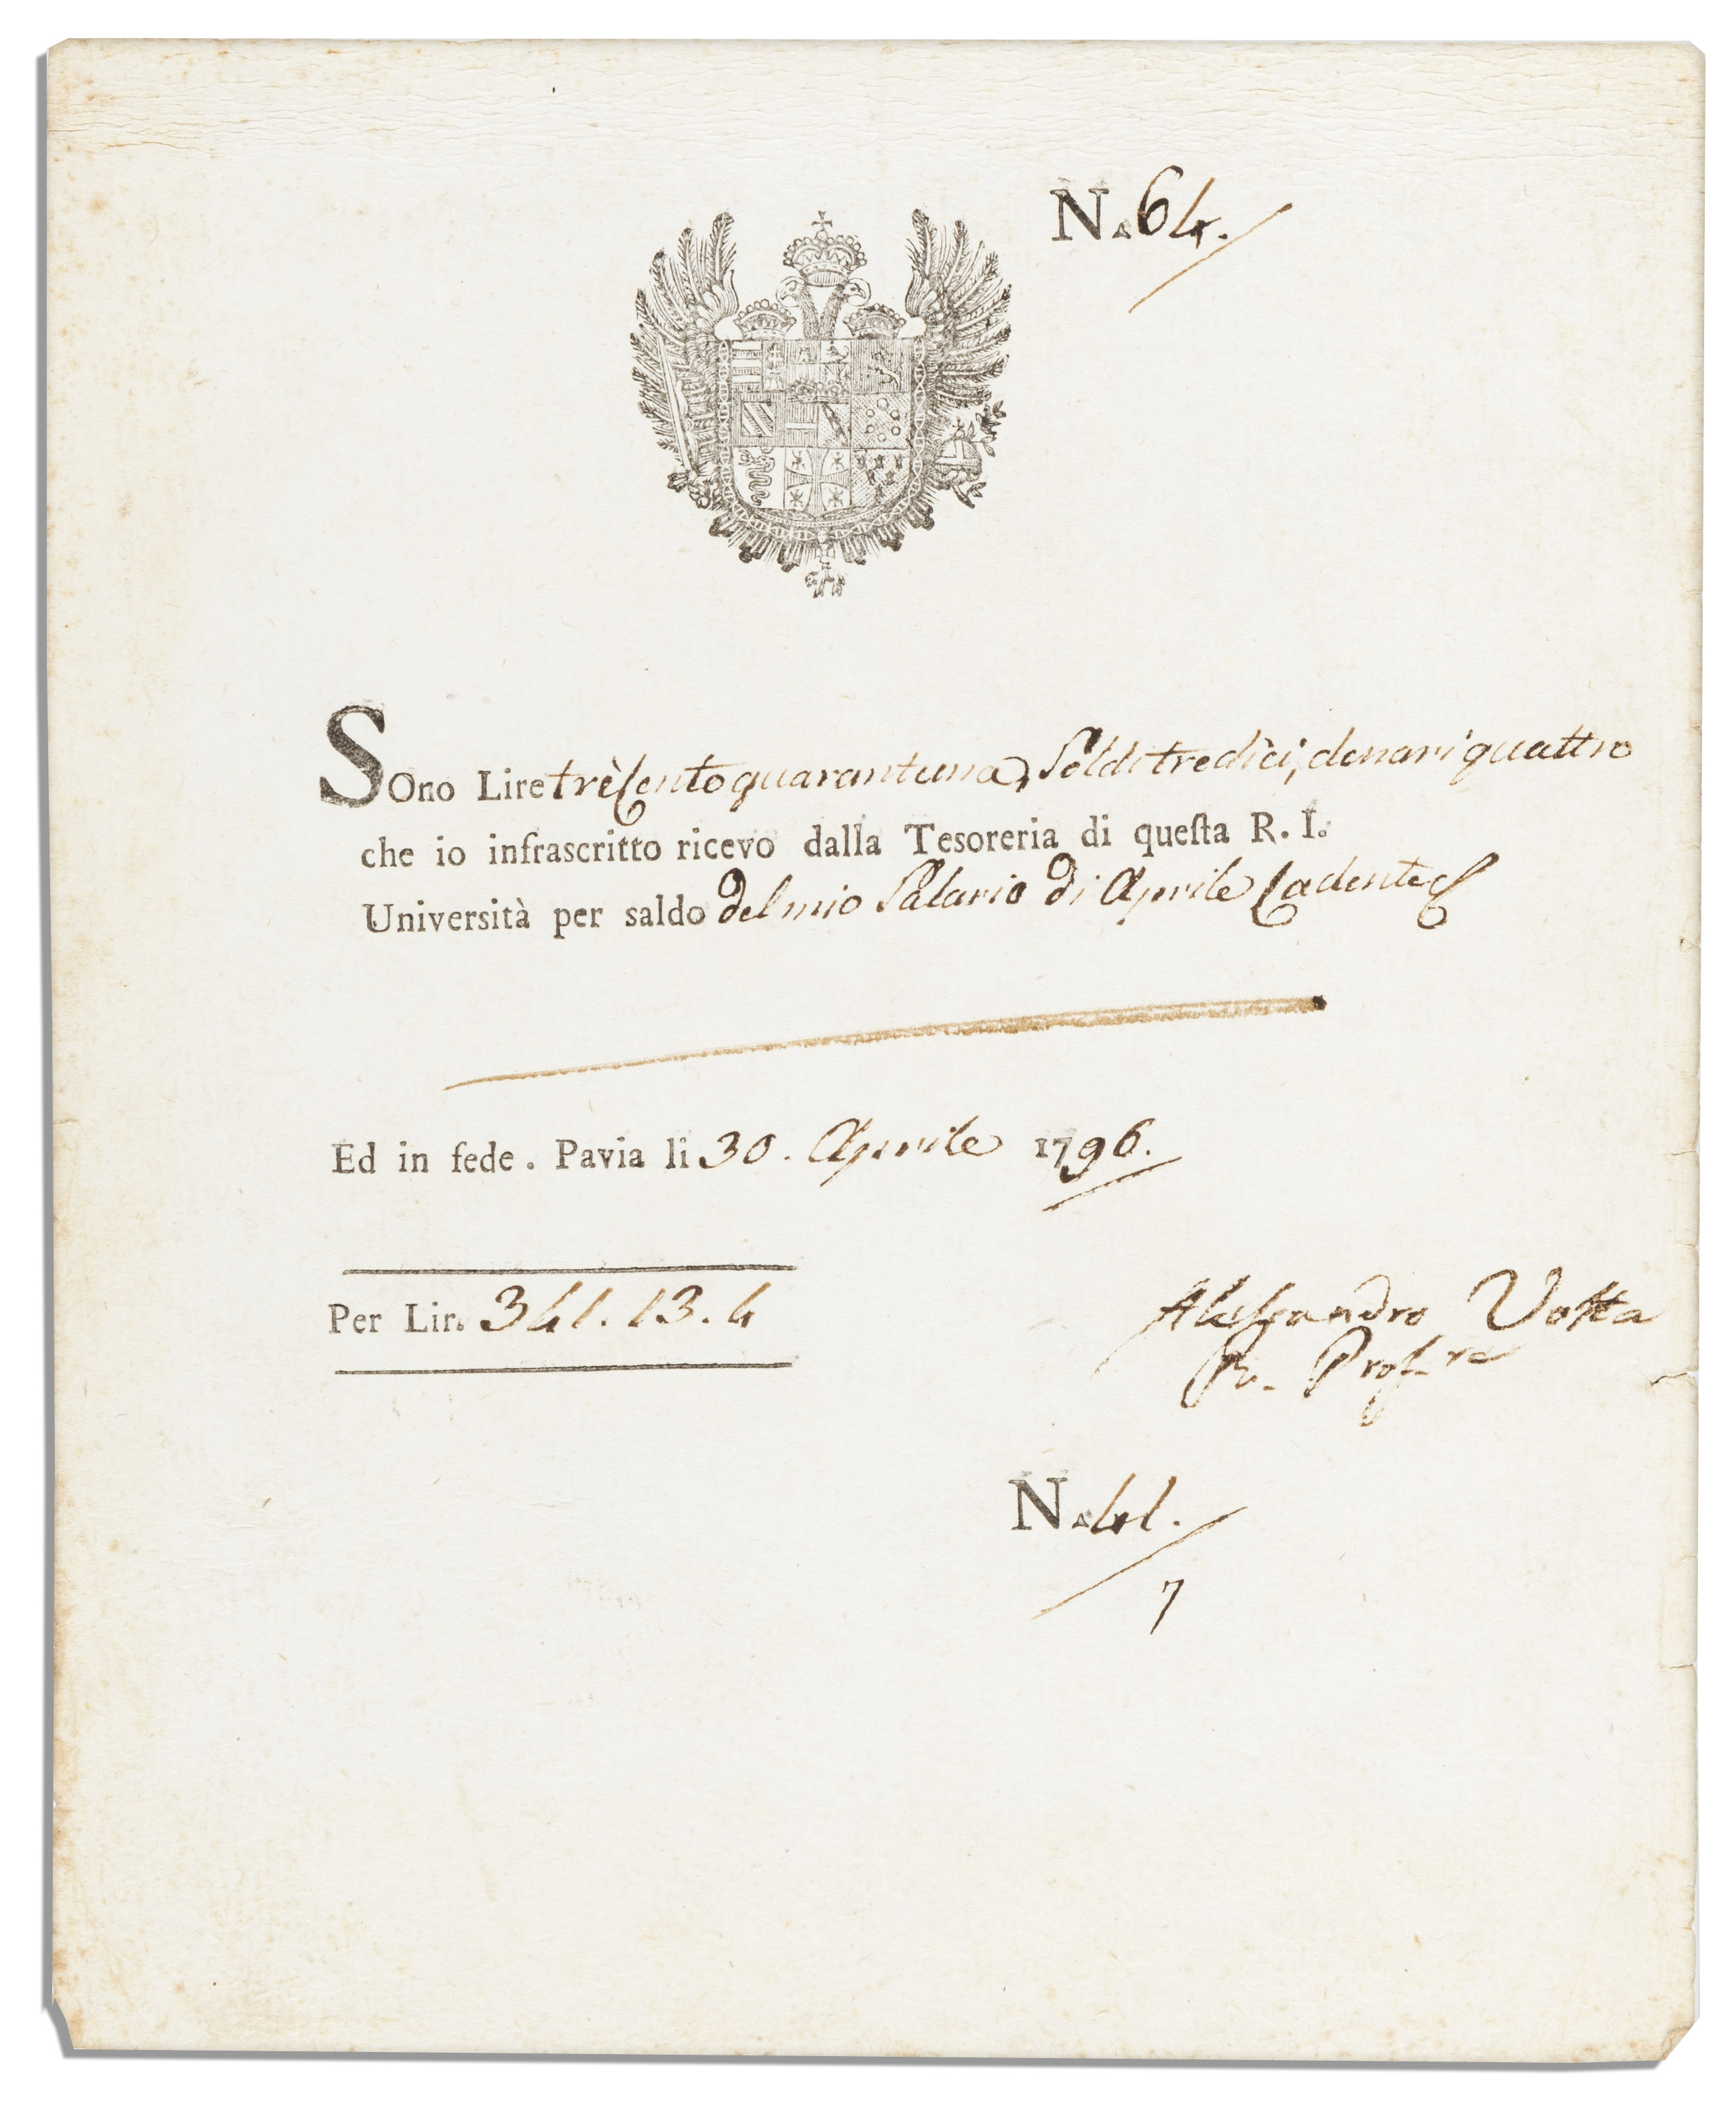 N.º 64.
SOno Lire trècento quarantuna, Soldi tredici, denari quattro
che io infrascritto ricevo dalla Tesoreria di queſta R. I.
Università per saldo del mio Salario di Aprile Cadente
Ed in fede. Pavia li 30. Aprile 1796.
Per Lir. 341.13.4
Alessandro Volta
R. Prof.re
N.º 41.
7